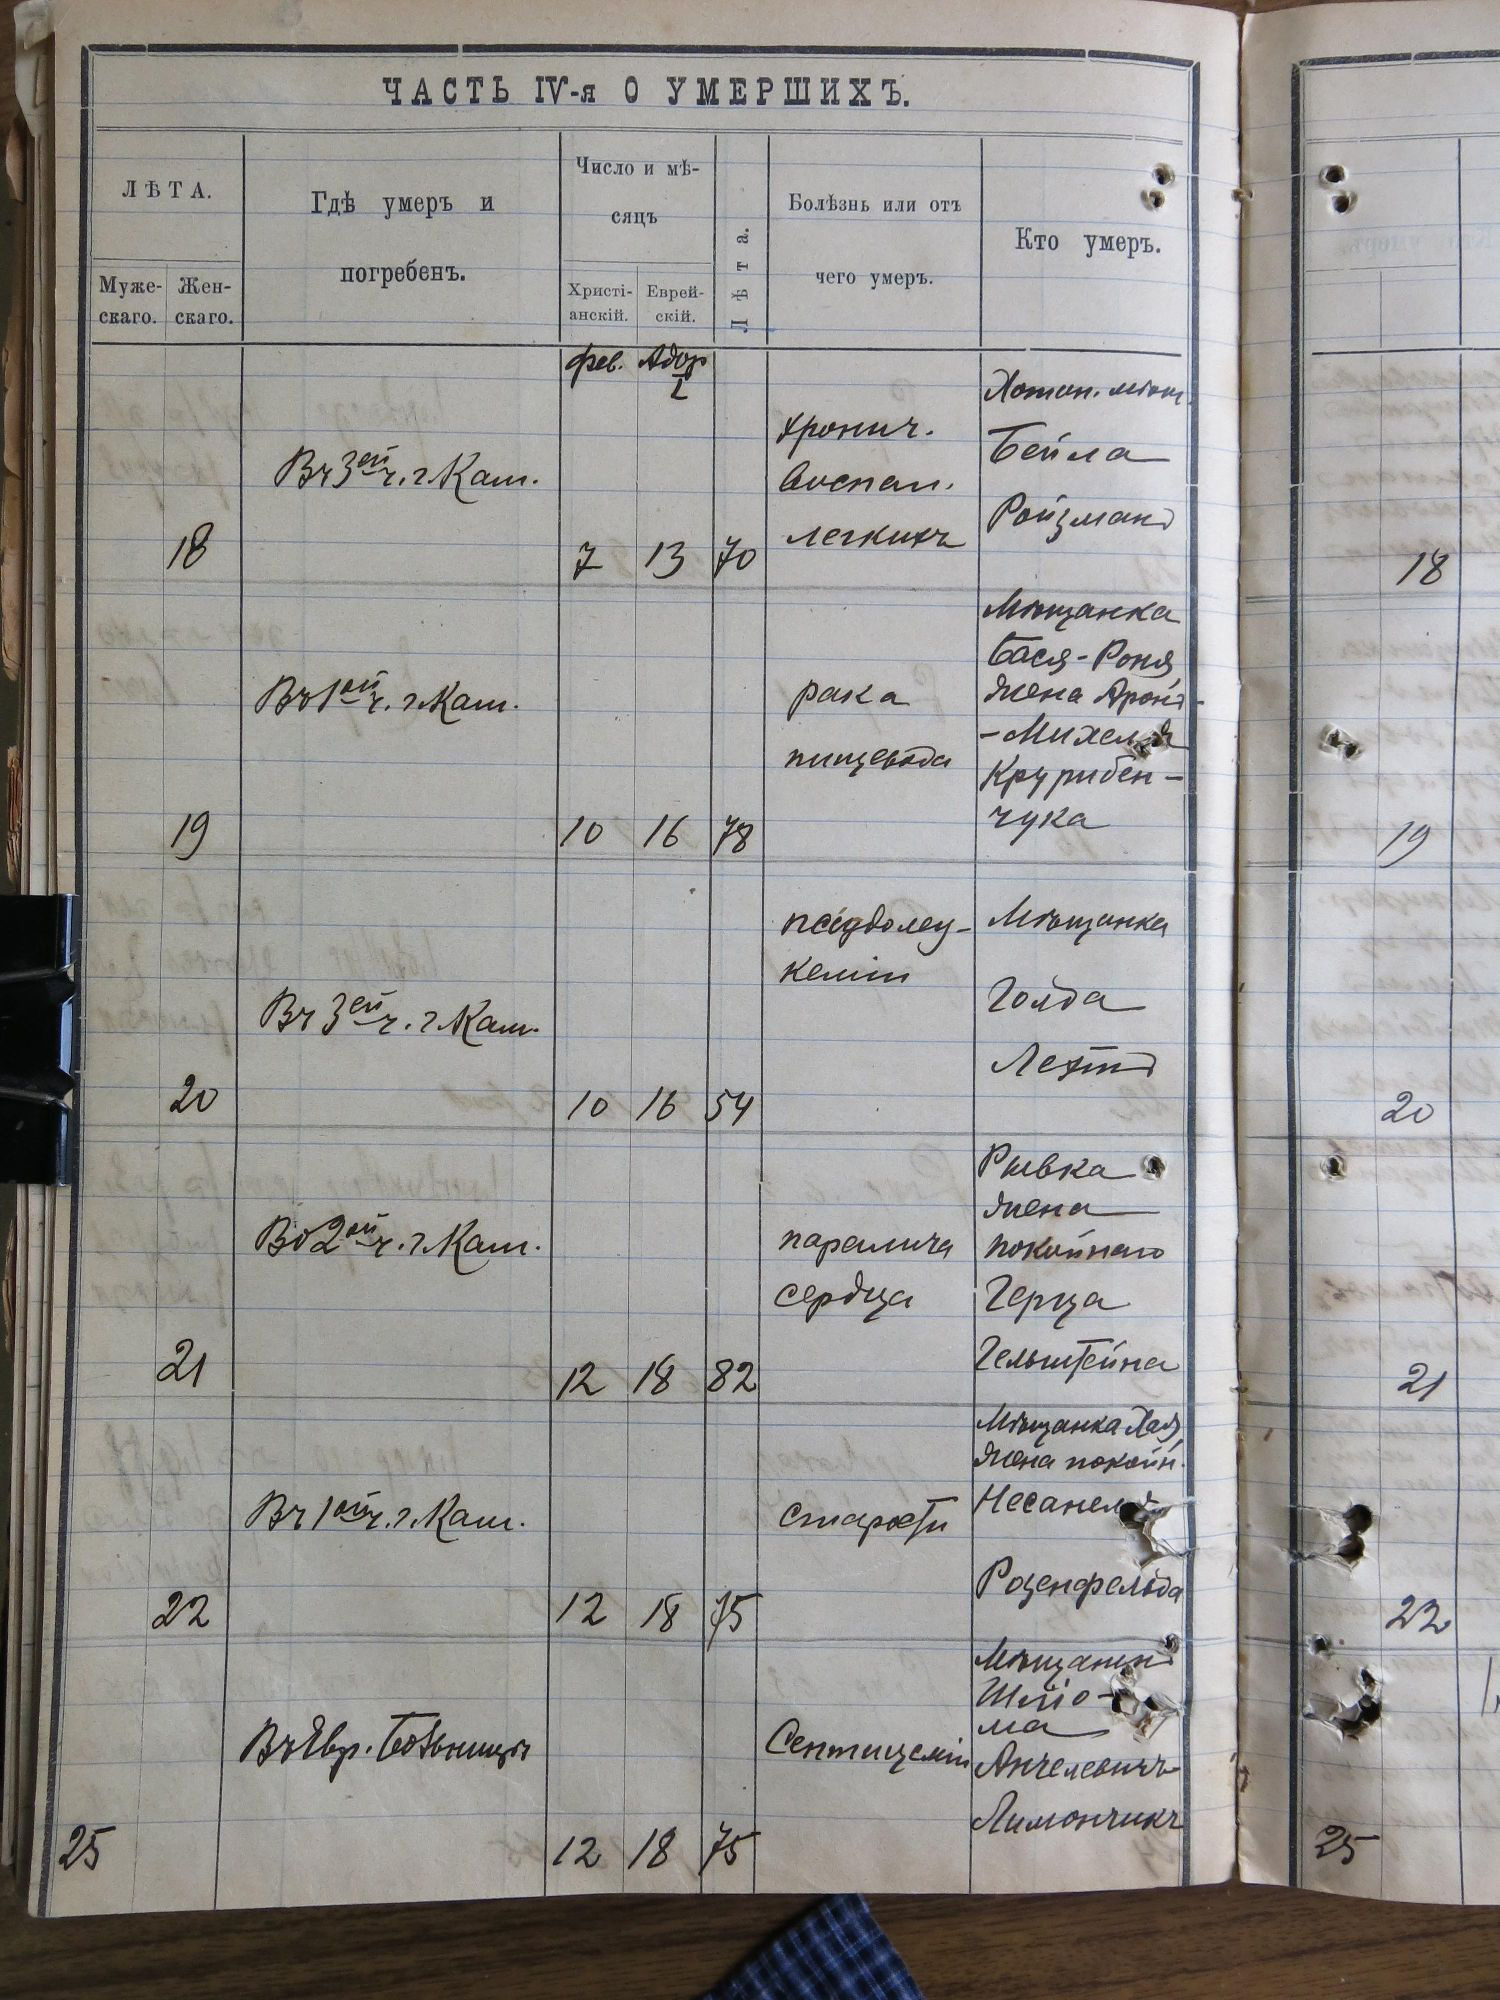 ЧАСТЬ IV-я О УМЕРШИХЪ.
ЛѢТА.
Муже-
скаго.
Жен-
скаго.
Гдѣ умеръ и
погребенъ.
Число и мѣ-
сяцъ
Христі-
анскій.
Еврей-
скій.
Лѣта.
Болѣзнь или отъ
чего умеръ.
Кто умеръ.
фев. Адор
I
18
Въ 3ей ч. г. Кам.
7 13 70
хронич.
воспал.
легкихъ
Хотин. мѣщ.
Бейла
Ройзманъ
18
19
Въ 1ой ч. г. Кам.
10 16 78
рака
пищевода
Мѣщанка
Бася-Роня
жена Аронъ-
-Михеля
чука
19
20
Въ 3ей ч. г. Кам.
10 16 54
псеудолеу-
кеміи
Мѣщанка
Голда
Лехтъ
20
21
Во 2ой ч. г. Кам.
12 18 82
паралича
сердца
Рывка
жена
покойнаго
Герца
Гельштейна
21
22
Въ 1ой ч. г. Кам.
12 18 75
старости
Мѣщанка Хая,
жена покойн.
Несанеля
Розенфельда
22
25
Въ Евр. Больницѣ
12 18 75
Септицеміи
Мѣщанинъ
Шлио-
ма
Анчелевичъ
Лимончикъ
25